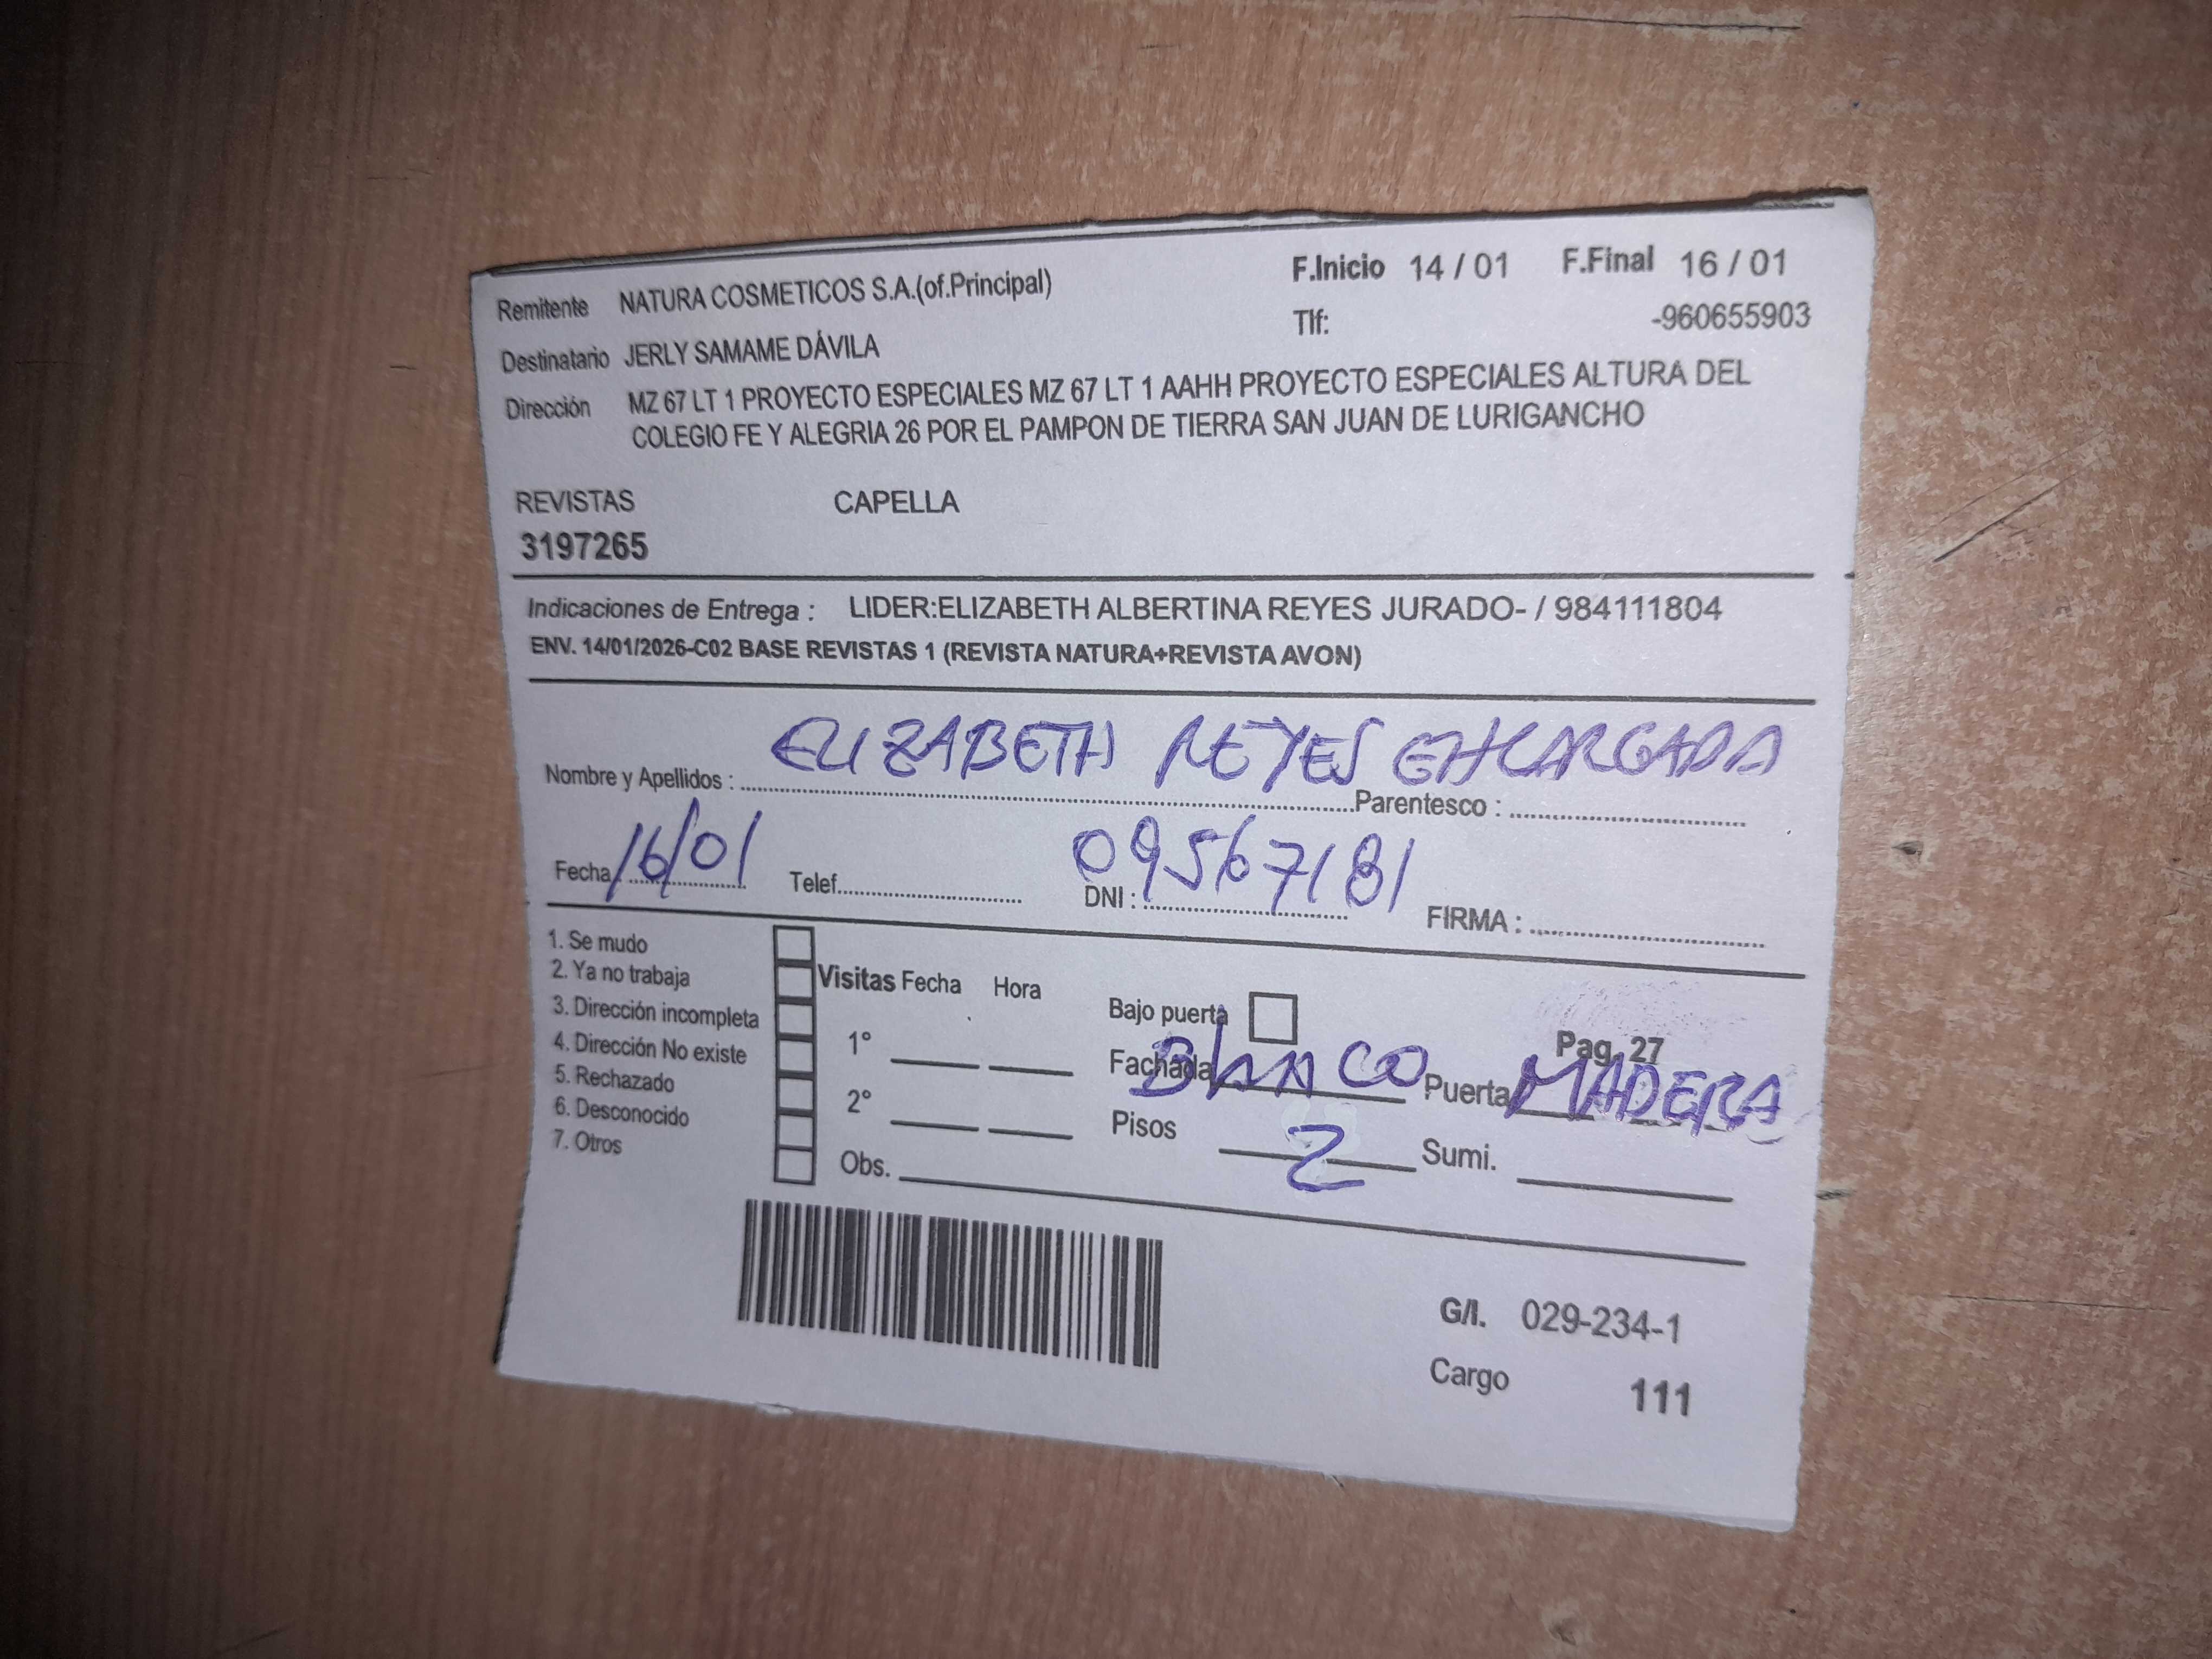 Remitente NATURA COSMETICOS S.A.(of.Principal) F.Inicio 14 / 01 F.Final 16 / 01
Tlf: -960655903
Destinatario JERLY SAMAME DÁVILA
Dirección MZ 67 LT 1 PROYECTO ESPECIALES MZ 67 LT 1 AAHH PROYECTO ESPECIALES ALTURA DEL
COLEGIO FE Y ALEGRIA 26 POR EL PAMPON DE TIERRA SAN JUAN DE LURIGANCHO
REVISTAS CAPELLA
3197265
Indicaciones de Entrega : LIDER:ELIZABETH ALBERTINA REYES JURADO- / 984111804
ENV. 14/01/2026-C02 BASE REVISTAS 1 (REVISTA NATURA+REVISTA AVON)
Nombre y Apellidos : ELIZABETH REYES Parentesco : ENCARGADA
Fecha 16/01 Telef. DNI : 09567181 FIRMA :
1. Se mudo
2. Ya no trabaja
3. Dirección incompleta
4. Dirección No existe
5. Rechazado
6. Desconocido
7. Otros
Visitas Fecha Hora
1°
2°
Obs.
Bajo puerta
Pag. 27
Fachada BLANCO Puerta MADERA
Pisos 2 Sumi.
G/I. 029-234-1
Cargo 111